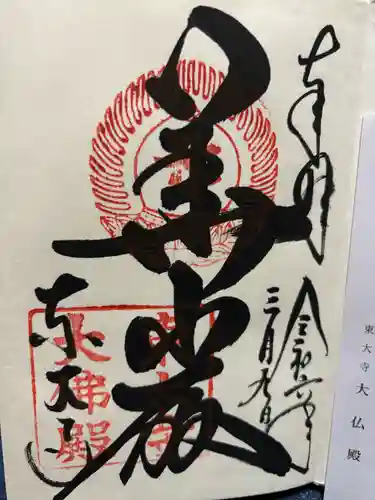 奉拝
令和六年
三月九日
華厳
東大寺
東大寺
大佛殿
東大寺 大仏殿